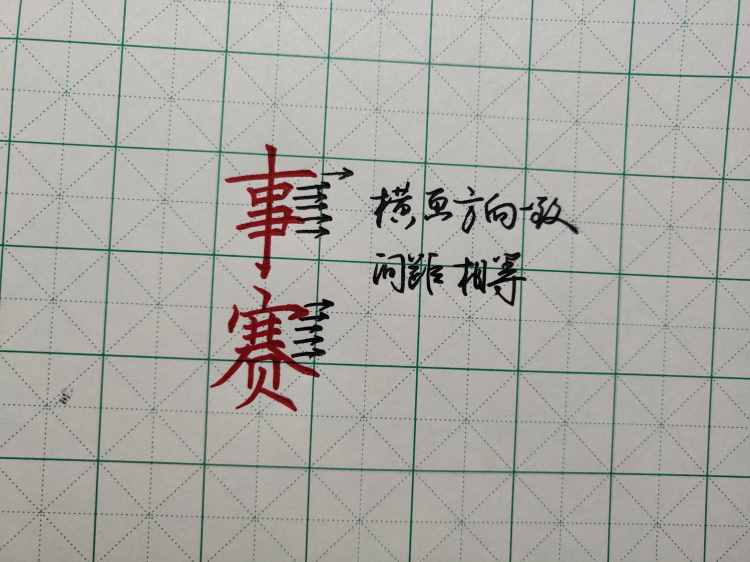 事
赛
横画方向一致
间距相等